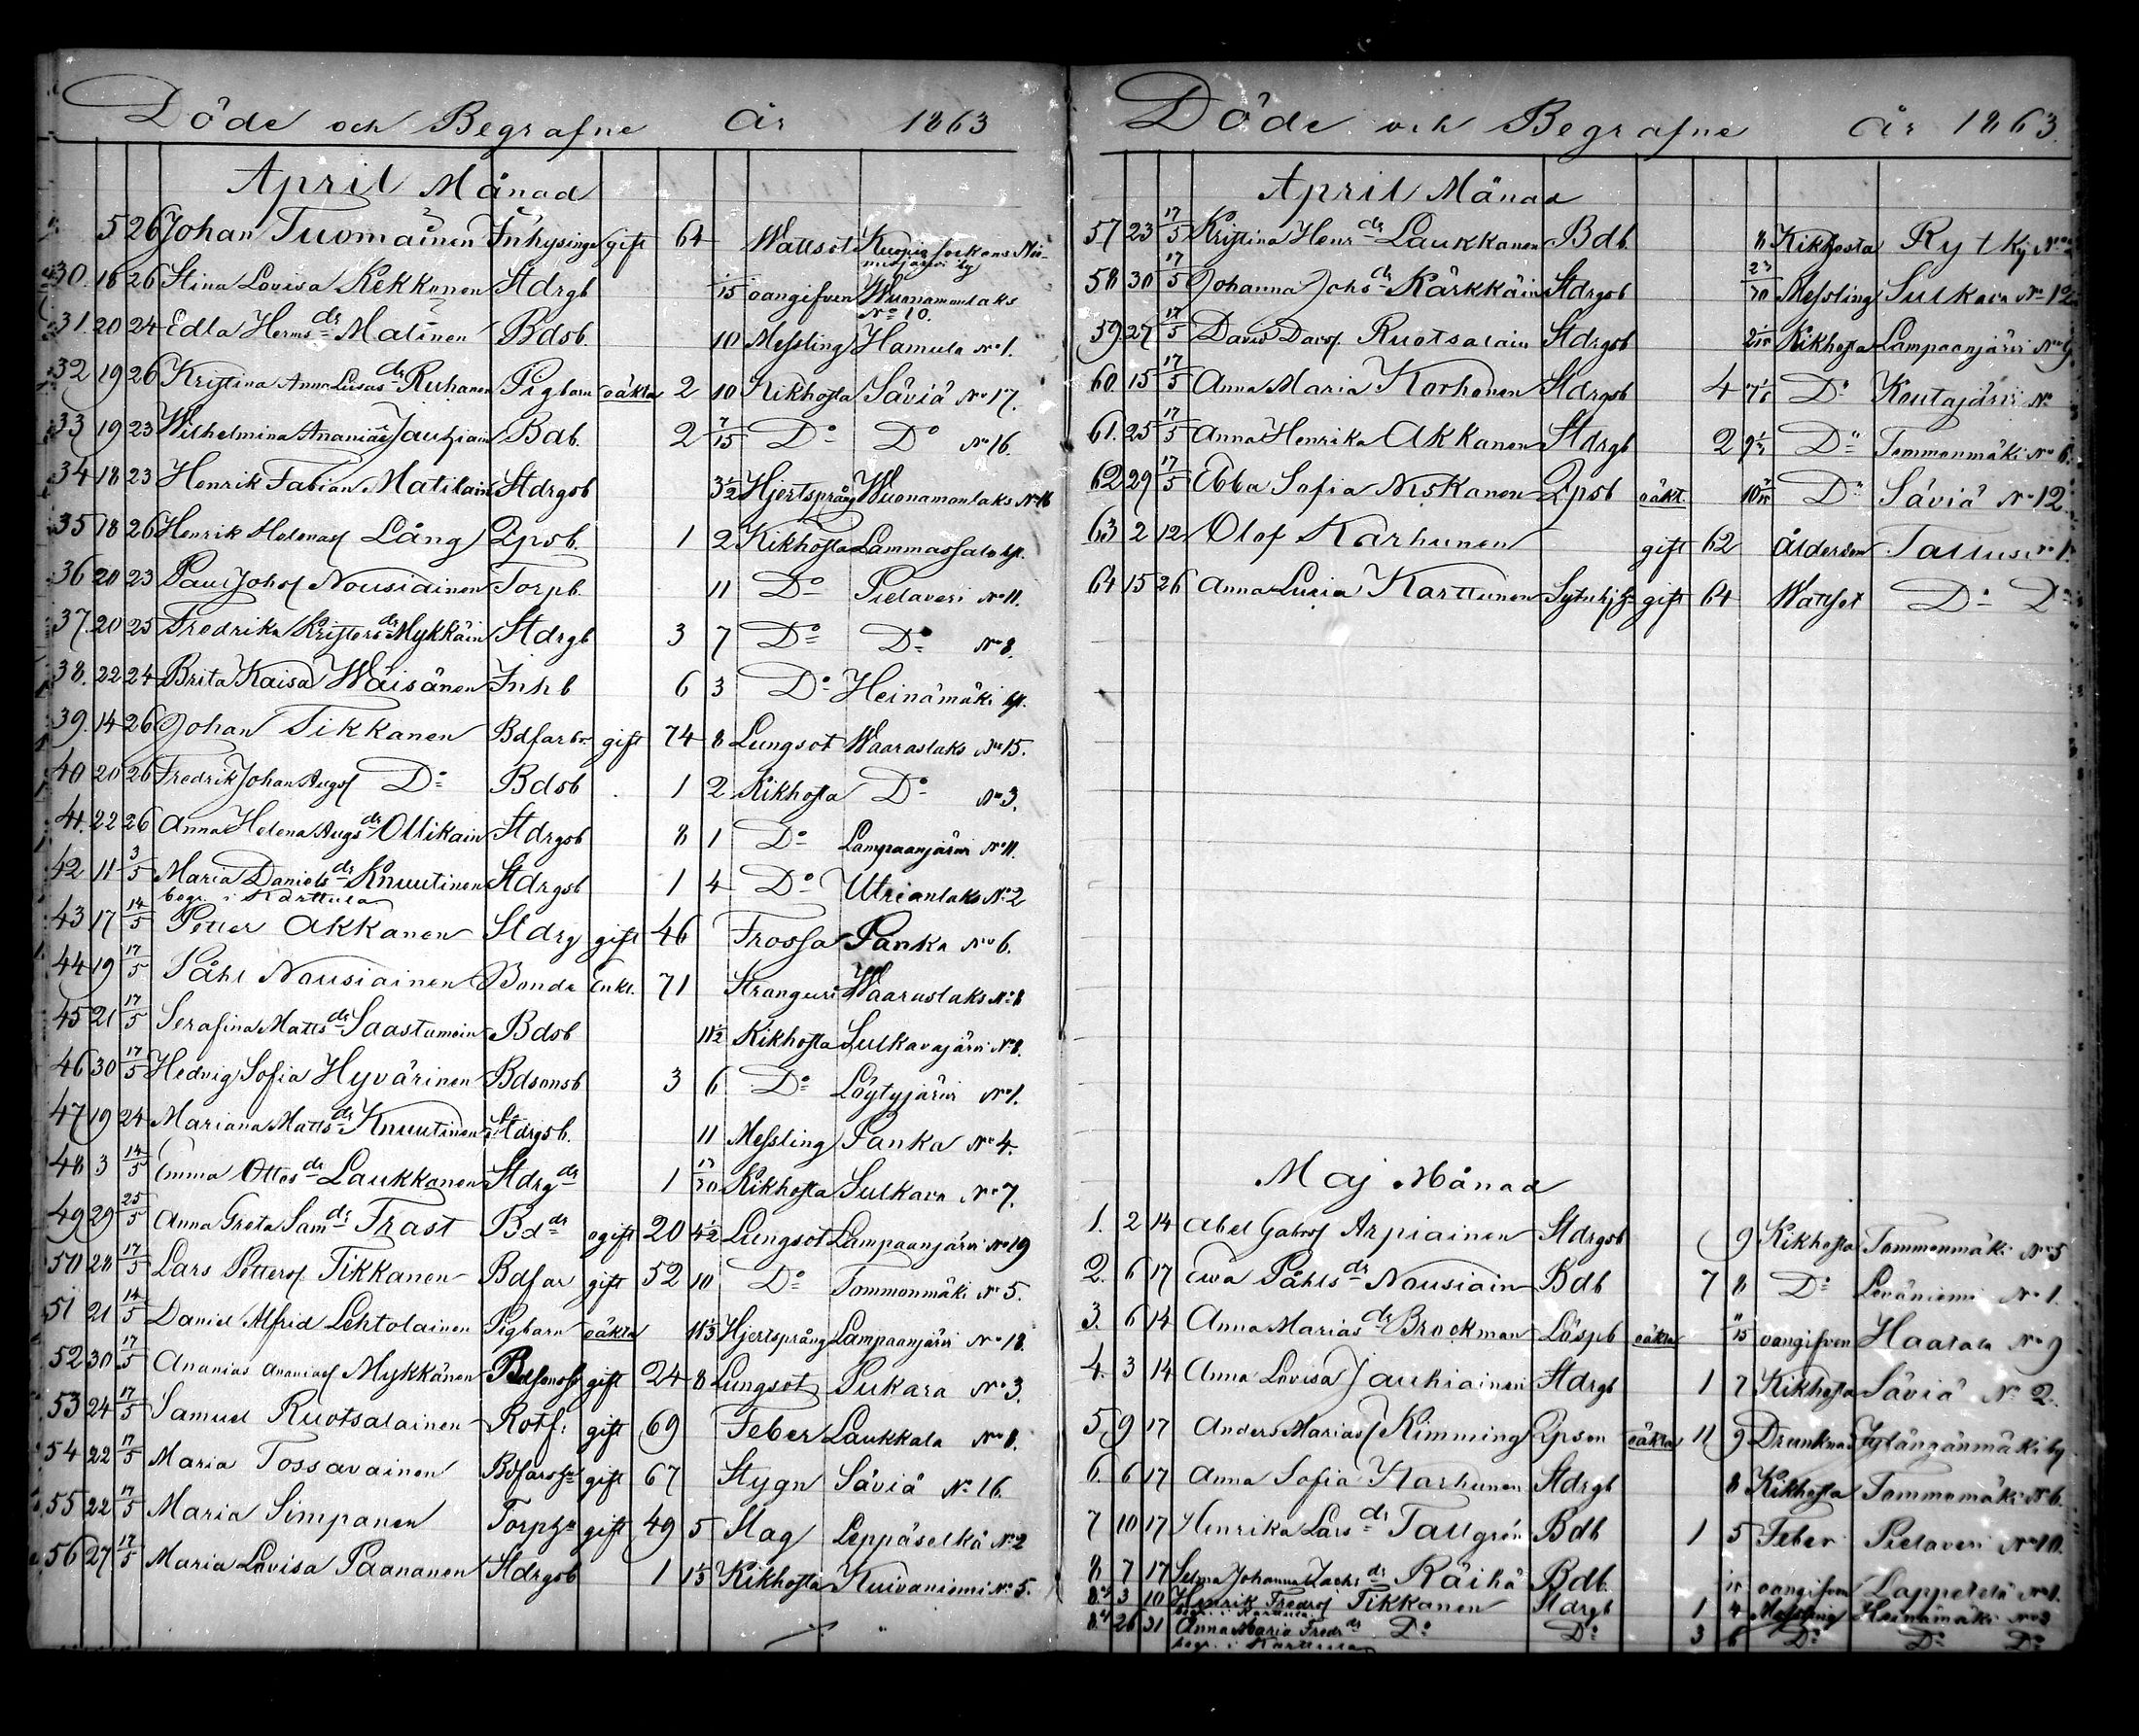 Döde och Begrafne år 1863
April Månad
5 26 Johan Tuomainen Inhysinge gift 64 Wattsot Kuopio sockens
by
30. 18 26 Stina Lovisa Kekkonen Stdrgb /15 oangifven Wuonamonlaks
No 10.
31. 20 24 Edla Herms dr Matinen Bdsb. 10 Messling Hamula No 1.
32 19 26 Kristina Anna Lusas dr Ruhanen Pigbarn oäkta 2 10 Kikhosta Säviä No 17.
33 19 23 Wilhelmina Ananiae Jauhiain Bdb. 2 7/15 Do Do No 16.
34 18 23 Henrik Fabian Matilain Stdrgsb 3 1/2 Hjertsprång Wuonamonlaks No 16
35 18 26 Henrik Helenas Lång Qpsb. 1 2 Kikhosta Lammassalo by.
36 20 23 Paul Johs Nousiainen Torpb. 11 Do Pielavesi No 11.
37. 20 25 Fredrika Kristers dr Mykkäin Stdrgb 3 7 Do Do No 8.
38. 22 24 Brita Kaisa Wäisänen Inhb 6 3 Do Heinämäki by.
39. 14 26 Johan Tikkanen Bdfarbr gift 74 8 Lungsot Waaraslaks No 15.
40 20 26 Fredrik Johan Augs Do Bdsb 1 2 Kikhosta Do No 3.
41. 22 26 Anna Helena Augs dr Ollikain Stdrgsb 8 1 Do Lampaanjärvi No 11.
42 11 3/5 Maria Daniels dr Knuutinen Stdrgsb 1 4 Do Utrianlaks No 2
begr. i Karttula
43 17 14/5 Petter Akkanen Stdrg gift 46 Frossa Panka No 6.
44 19 17/5 Påhl Nousiainen Bonde Enkl. 71 Stranguri Waaraslaks No 8
45 21 17/5 Serafina Matts dr Saastamoin Bdsb 11 1/2 Kikhosta Sulkavajärvi No 8.
46 30 17/5 Hedvig Sofia Hyvärinen Bdsonsb 3 6 Do Löytyjärvi No 1.
47 19 24 Mariana Matts dr Knuutinen Stdrgsb. 11 Messling Panka No 4.
48 3 14/5 Emma Ottos dr Laukkanen Stdrg dr 1 17/30 Kikhosta Sulkava No 7.
49 29 25/5 Anna Greta Sam dr Frast Bd dr ogift 20 4 1/2 Lungsot Lampaanjärvi No 19
50 28 17/5 Lars Petters Tikkanen Bdfar gift 52 10 Do Tommonmäki No 5.
51 21 14/5 Daniel Alfrid Lehtolainen Pigbarn oäkta 11 1/3 Hjertsprång Lampaanjärvi No 18.
52 30 17/5 Ananias Ananias Mykkänen gift 24 8 Lungsot Pukara No 3.
53 24 17/5 Samuel Ruotsalainen Rotf: gift 69 Feber Laukkala No 8.
54 22 17/5 Maria Tossavainen gift 67 Stygn Säviä No 16.
55 22 17/5 Maria Simpanen gift 49 5 Slag Leppäselkä No 2
56 27 17/5 Maria Lovisa Paananen Stdrgsb 1 1 1/3 Kikhosta Kuivaniemi No 5.
Döde och Begrafne år 1863.
April Månad
57 23 17/5 Kristina Henr dr Laukkanen Bdb. 8 Kikhosta Rytky No
58 30 17/5 Johanna Johs dr Kärkkäin Stdrgsb 23/30 Messling Sulkava No 12
59. 27 17/5 David Davs Ruotsalain Stdrgsb Kikhosta Lampaanjärvi No 9
60. 15 17/5 Anna Maria Korhonen Stdrgsb 4 Do Koutajärvi No
61. 25 17/5 Anna Henrika Akkanen Stdrgb 2 Do Tommonmäki No 6.
62 29 17/5 Ebba Sofia Niskanen Qpsb oäkt. Do Säviä No 12
63 2 12 Olof Karhunen gift 62 Ålderdom Tallus No 1.
64 15 26 Anna Lusia Karttunen gift 64 Wattsot Do Do
Maj Månad
1. 2 14 Abel Gabrs Arpiainen Stdrgsb 9 Kikhosta Tommonmäki No 5
2. 6 17 Ewa Påhls dr Nousiain Bdb 7 8 Do Leväniemi No 1.
3. 6 14 Anna Marias dr Brockman Löspb oäkta 11/15 oangifven Haatala No 9
4. 3 14 Anna Lovisa Jauhiainen Stdrgb 1 7 Kikhosta Säviä No 2.
5 9 17 Anders Marias Kimming Qpson oäkta 11 9 Drunknat Jylängänmäki by
6. 6 17 Anna Sofia Karhunen Stdrgb 8 Kikhosta Tommomäki No 6.
7 10 17 Henrika Lars dr Tallgrén Bdb 1 5 Feber Pielavesi No 10.
8 7 17 Selma Johanna Zachs dr Räihä Bdb. oangifven Lappetelä No 1.
3 10 Henrik Fredrs Tikkanen Stdrgb 1 4 Messling Heinämäki No 3
begr. i Karttula
26 31 Anna Maria Fredr dr Do Do 3 6 Do Do Do
begr. i Karttula